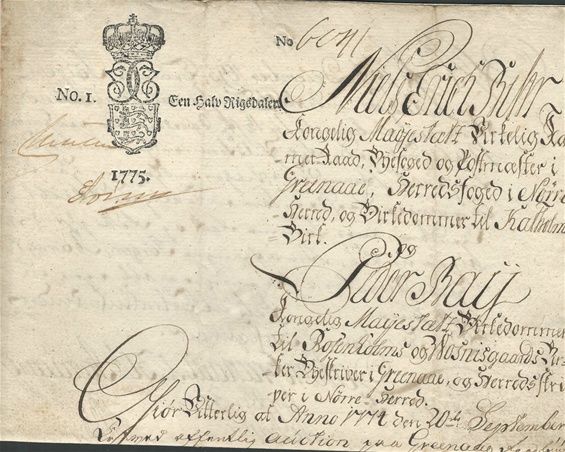 No 6041
No. 1.
Een Halv Rigsdaler.
1775.
Niels Erich Buhr
Kongelig Mayestætt Virkelig Ka
mer-Raad, Byefoged og Postmæster i
Greenaae, Herredsfoged i Nørre
Herred, og Birkedommer til Kalholms
Birk.
og
Peder Bay
Kongelig Mayestætt Birkedommer
til Rosenholms og Wosnisgaards Bir-
ker Byeskriver i Greenaae, og Herredsskri
ver i Nørre-Herred.
Giør Vitterlig at Anno 1774 den 20de September
offentlig auction paa Greenaae